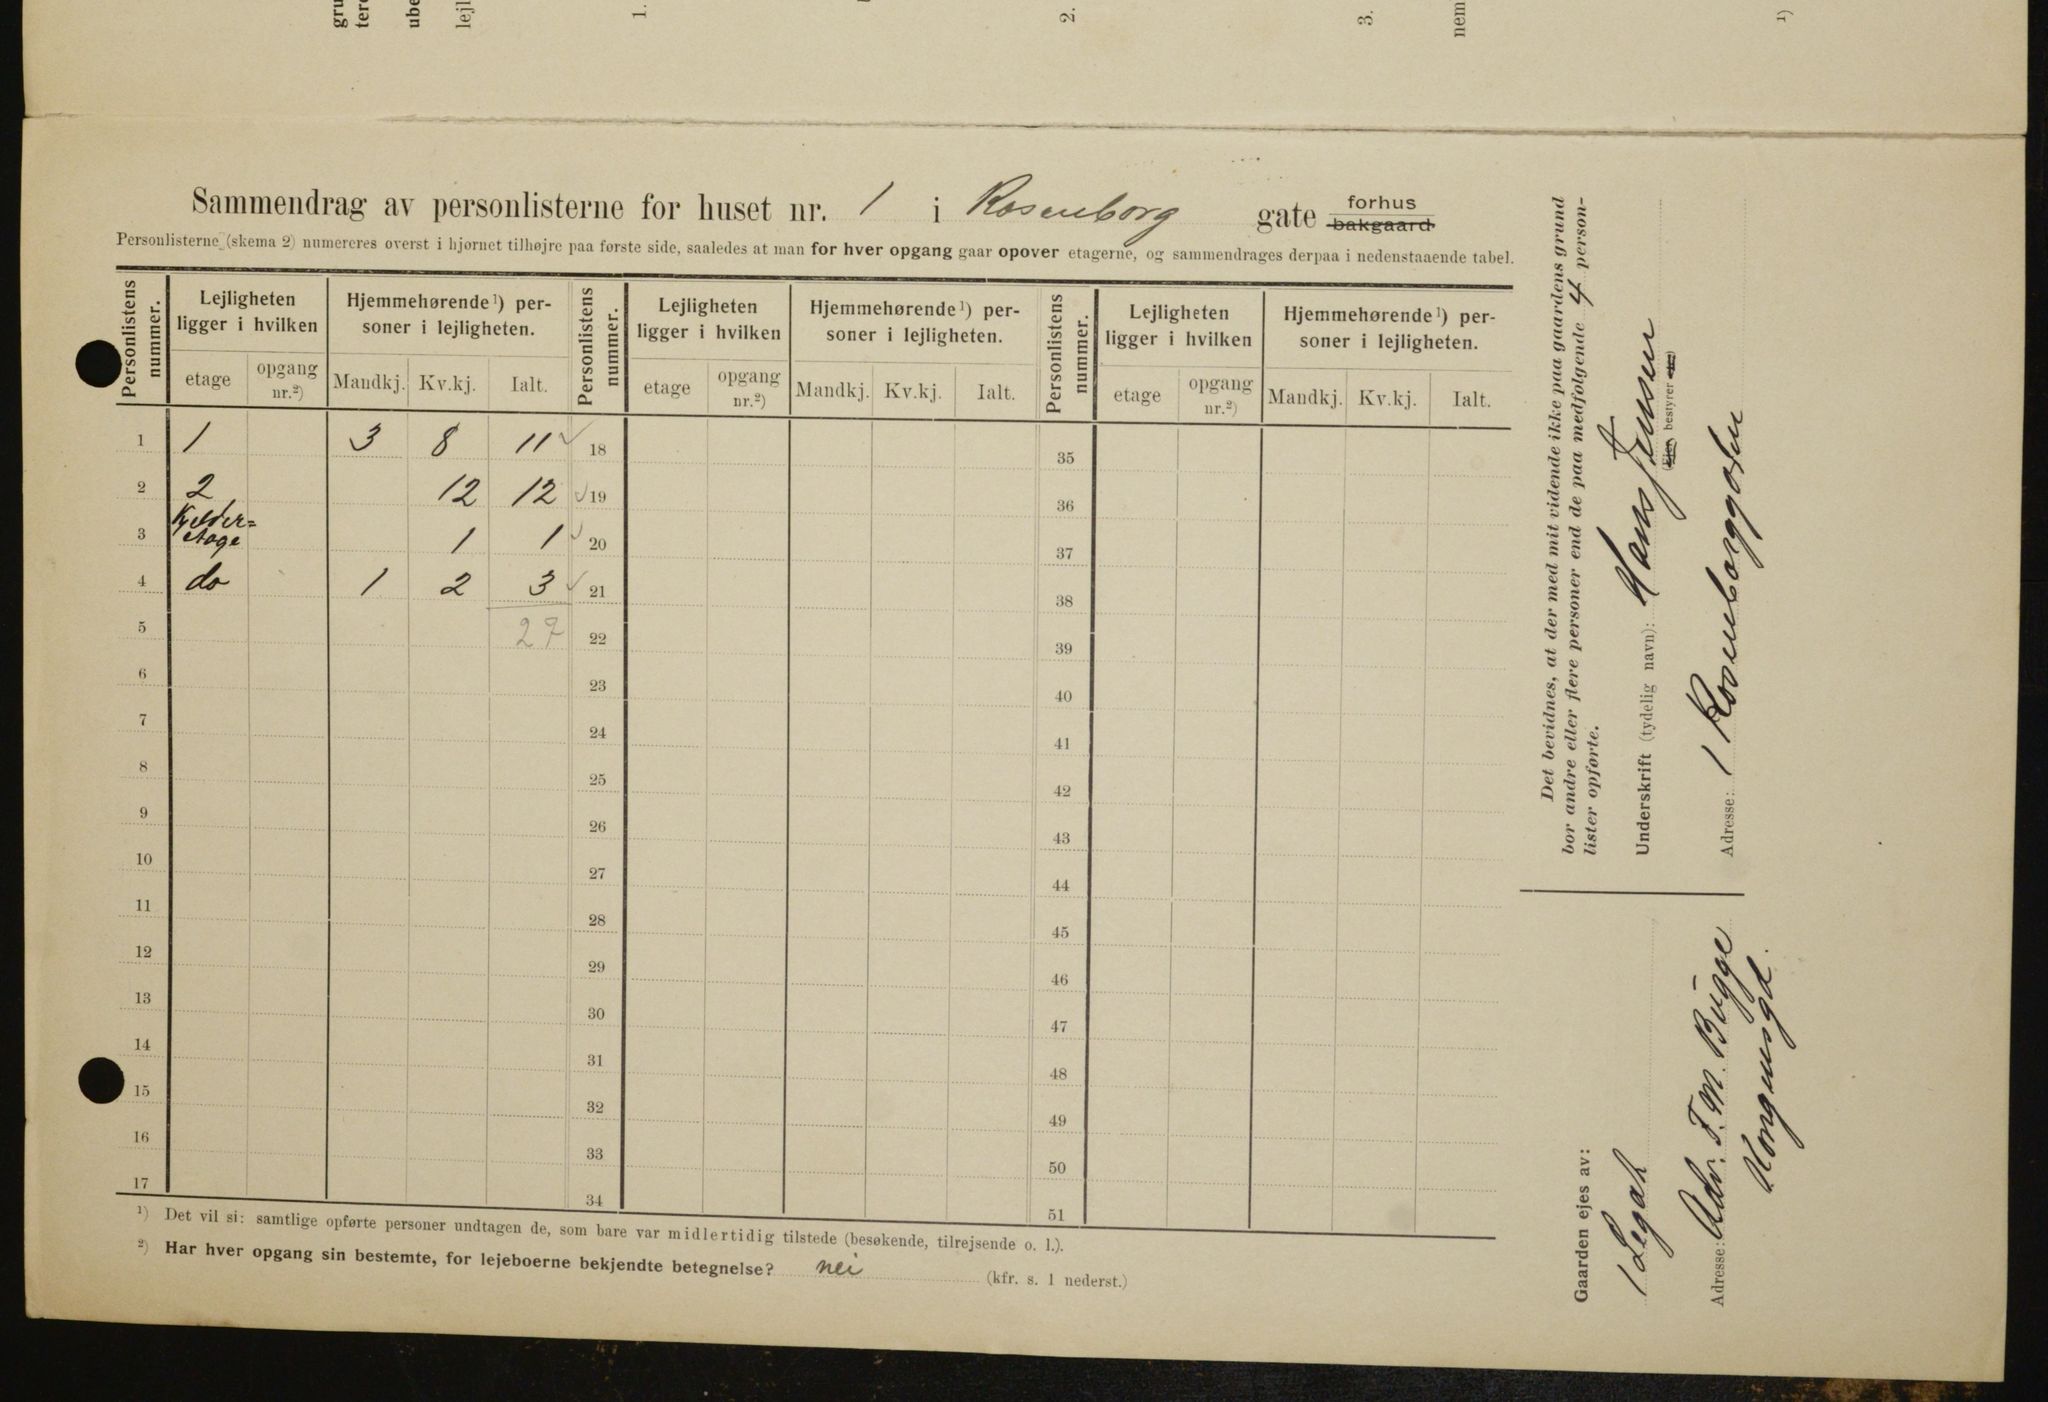 gru
tere
ube
lejl
1.
2.
3.
nem
1)
Sammendrag av personlisterne for huset nr. 1 i Rosenborg gate forhus bakgaard
Personlisterne (skema 2) numereres øverst i hjørnet tilhøjre paa første side, saaledes at man for hver opgang gaar opover etagerne, og sammendrages derpaa i nedenstaaende tabel.
Personlistens nummer. Lejligheten ligger i hvilken Hjemmehørende¹) personer i lejligheten. Personlistens nummer. Lejligheten ligger i hvilken Hjemmehørende¹) personer i lejligheten. Personlistens nummer. Lejligheten ligger i hvilken Hjemmehørende¹) personer i lejligheten.
etage opgang nr.²) Mandkj. Kv.kj. Ialt. etage opgang nr.²) Mandkj. Kv.kj. Ialt. etage opgang nr.²) Mandkj. Kv.kj. Ialt.
1 1 3 8 11 ✓ 18 35
2 2 12 12 ✓ 19 36
3 Kjelder= etage 1 1 ✓ 20 37
4 do 1 2 3 ✓ 21 38
5 27 22 39
6 23 40
7 24 41
8 25 42
9 26 43
10 27 44
11 28 45
12 29 46
13 30 47
14 31 48
15 32 49
16 33 50
17 34 51
¹) Det vil si: samtlige opførte personer undtagen de, som bare var midlertidig tilstede (besøkende, tilrejsende o. l.).
²) Har hver opgang sin bestemte, for lejeboerne bekjendte betegnelse? nei (kfr. s. 1 nederst.)
Det bevidnes, at der med mit vidende ikke paa gaardens grund
bor andre eller flere personer end de paa medfølgende 4 person-
lister opførte.
Underskrift (tydelig navn): Hans Jensen
(Ejer, bestyrer etc.)
Adresse: 1 Rosenborggaten
Gaarden ejes av:
1 Legat
Adresse: Adv. F. M. Bugge
Kongensgd.